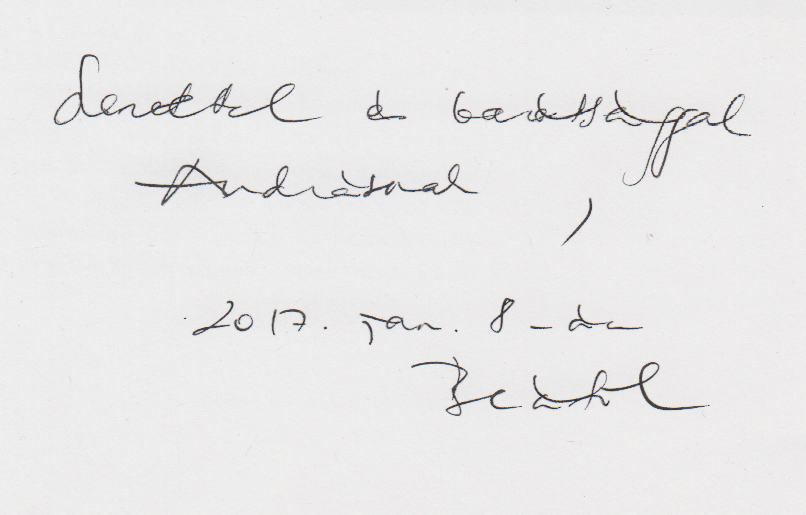 Szeretettel és barátsággal
Andrásnak,
2017. jan. 8-án
Beától